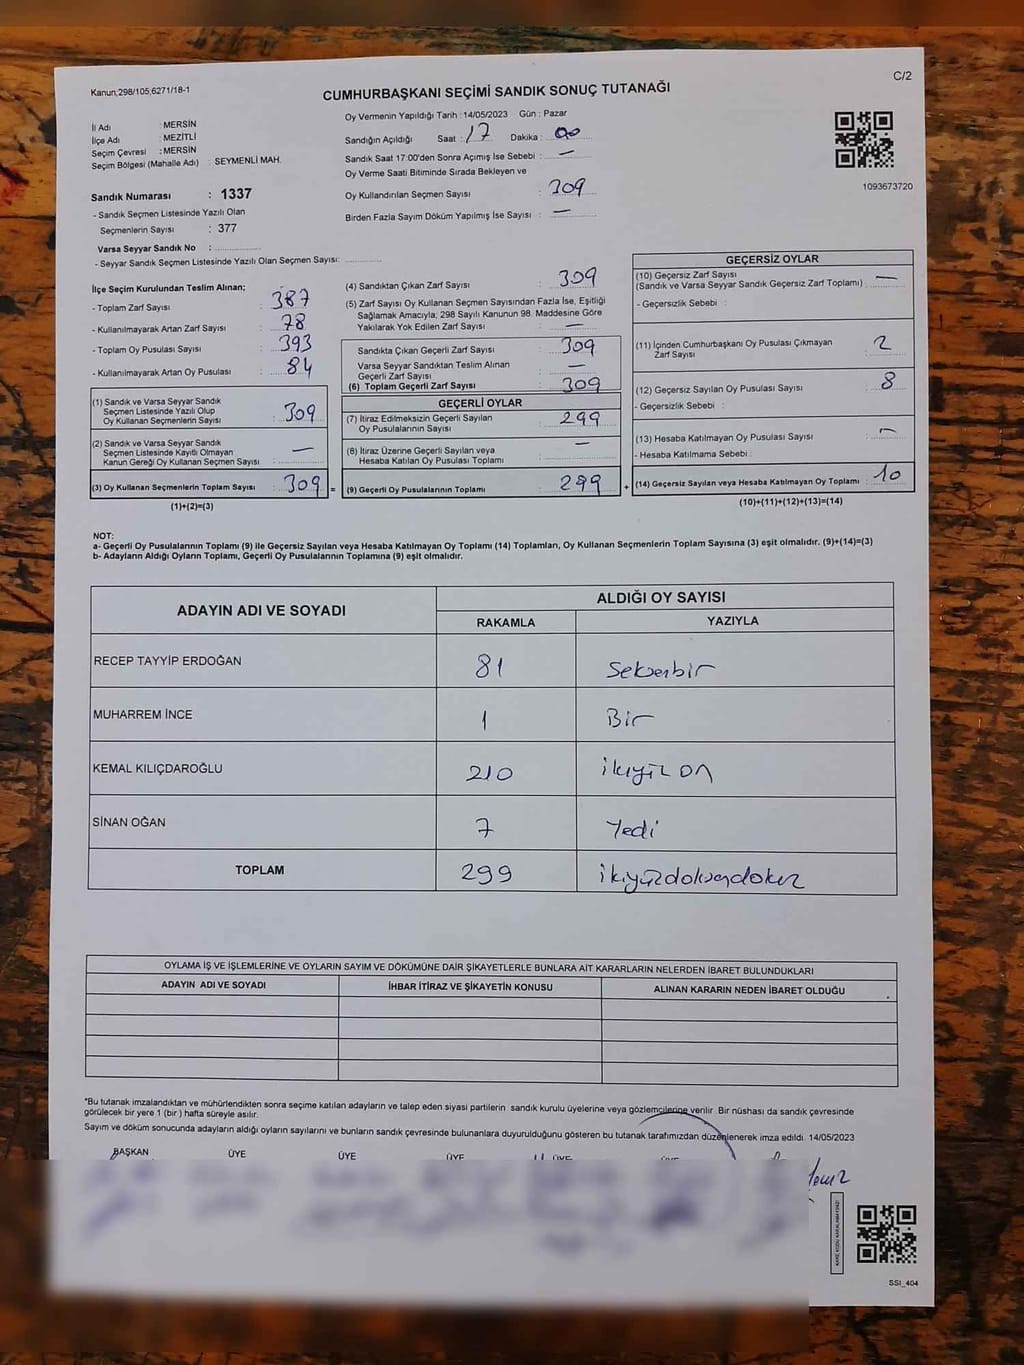 C/2
Kanun,298/105,6271/18-1
CUMHURBAŞKANI SEÇİMİ SANDIK SONUÇ TUTANAĞI
İl Adı : MERSİN
İlçe Adı : MEZİTLİ
Seçim Çevresi : MERSİN
Seçim Bölgesi (Mahalle Adı) : SEYMENLİ MAH.
Sandık Numarası : 1337
- Sandık Seçmen Listesinde Yazılı Olan
Seçmenlerin Sayısı : 377
Varsa Seyyar Sandık No :
- Seyyar Sandık Seçmen Listesinde Yazılı Olan Seçmen Sayısı:
Oy Vermenin Yapıldığı Tarih : 14/05/2023 Gün : Pazar
Sandığın Açıldığı Saat : 17 Dakika : 00
Sandık Saat 17:00'den Sonra Açımış İse Sebebi : —
Oy Verme Saati Bitiminde Sırada Bekleyen ve
Oy Kullandırılan Seçmen Sayısı : 309
Birden Fazla Sayım Döküm Yapılmış İse Sayısı : —
1093673720
İlçe Seçim Kurulundan Teslim Alınan;
- Toplam Zarf Sayısı : 387
- Kullanılmayarak Artan Zarf Sayısı : 78
- Toplam Oy Pusulası Sayısı : 393
- Kullanılmayarak Artan Oy Pusulası : 84
(1) Sandık ve Varsa Seyyar Sandık
Seçmen Listesinde Yazılı Olup
Oy Kullanan Seçmenlerin Sayısı : 309
(2) Sandık ve Varsa Seyyar Sandık
Seçmen Listesinde Kayıtlı Olmayan
Kanun Gereği Oy Kullanan Seçmen Sayısı : —
(3) Oy Kullanan Seçmenlerin Toplam Sayısı : 309 =
(1)+(2)=(3)
(4) Sandıktan Çıkan Zarf Sayısı : 309
(5) Zarf Sayısı Oy Kullanan Seçmen Sayısından Fazla İse, Eşitliği
Sağlamak Amacıyla; 298 Sayılı Kanunun 98. Maddesine Göre
Yakılarak Yok Edilen Zarf Sayısı : —
Sandıkta Çıkan Geçerli Zarf Sayısı : 309
Varsa Seyyar Sandıktan Teslim Alınan
Geçerli Zarf Sayısı : —
(6) Toplam Geçerli Zarf Sayısı : 309
GEÇERLİ OYLAR
(7) İtiraz Edilmeksizin Geçerli Sayılan
Oy Pusulalarının Sayısı : 299
(8) İtiraz Üzerine Geçerli Sayılan veya
Hesaba Katılan Oy Pusulası Toplamı : —
(9) Geçerli Oy Pusulalarının Toplamı : 299 +
GEÇERSİZ OYLAR
(10) Geçersiz Zarf Sayısı
(Sandık ve Varsa Seyyar Sandık Geçersiz Zarf Toplamı) : —
- Geçersizlik Sebebi :
(11) İçinden Cumhurbaşkanı Oy Pusulası Çıkmayan
Zarf Sayısı : 2
(12) Geçersiz Sayılan Oy Pusulası Sayısı : 8
- Geçersizlik Sebebi :
(13) Hesaba Katılmayan Oy Pusulası Sayısı : —
- Hesaba Katılmama Sebebi :
(14) Geçersiz Sayılan veya Hesaba Katılmayan Oy Toplamı : 10
(10)+(11)+(12)+(13)=(14)
NOT:
a- Geçerli Oy Pusulalarının Toplamı (9) ile Geçersiz Sayılan veya Hesaba Katılmayan Oy Toplamı (14) Toplamları, Oy Kullanan Seçmenlerin Toplam Sayısına (3) eşit olmalıdır. (9)+(14)=(3)
b- Adayların Aldığı Oyların Toplamı, Geçerli Oy Pusulalarının Toplamına (9) eşit olmalıdır.
ADAYIN ADI VE SOYADI ALDIĞI OY SAYISI
RAKAMLA YAZIYLA
RECEP TAYYİP ERDOĞAN 81 Seksenbir
MUHARREM İNCE 1 Bir
KEMAL KILIÇDAROĞLU 210 ikiyüz on
SİNAN OĞAN 7 Yedi
TOPLAM 299 ikiyüzdoksandokuz
OYLAMA İŞ VE İŞLEMLERİNE VE OYLARIN SAYIM VE DÖKÜMÜNE DAİR ŞİKAYETLERLE BUNLARA AİT KARARLARIN NELERDEN İBARET BULUNDUKLARI
ADAYIN ADI VE SOYADI İHBAR İTİRAZ VE ŞİKAYETİN KONUSU ALINAN KARARIN NEDEN İBARET OLDUĞU
*Bu tutanak imzalandıktan ve mühürlendikten sonra seçime katılan adayların ve talep eden siyasi partilerin sandık kurulu üyelerine veya gözlemcilerine verilir. Bir nüshası da sandık çevresinde
görülecek bir yere 1 (bir) hafta süreyle asılır.
Sayım ve döküm sonucunda adayların aldığı oyların sayılarını ve bunların sandık çevresinde bulunanlara duyurulduğunu gösteren bu tutanak tarafımızdan düzenlenerek imza edildi. 14/05/2023
BAŞKAN ÜYE ÜYE ÜYE ÜYE ÜYE
SSI_404